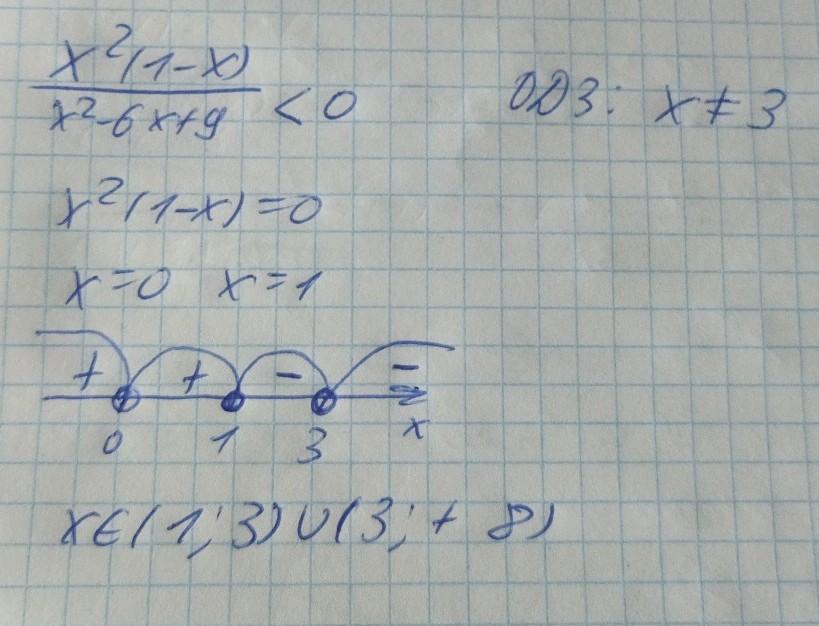 x²(1-x)
x²-6x+9 < 0 ОДЗ: x ≠ 3
x²(1-x)=0
x=0 x=1
+ + - -
0 1 3 x
x∈(1; 3)∪(3; + 8)